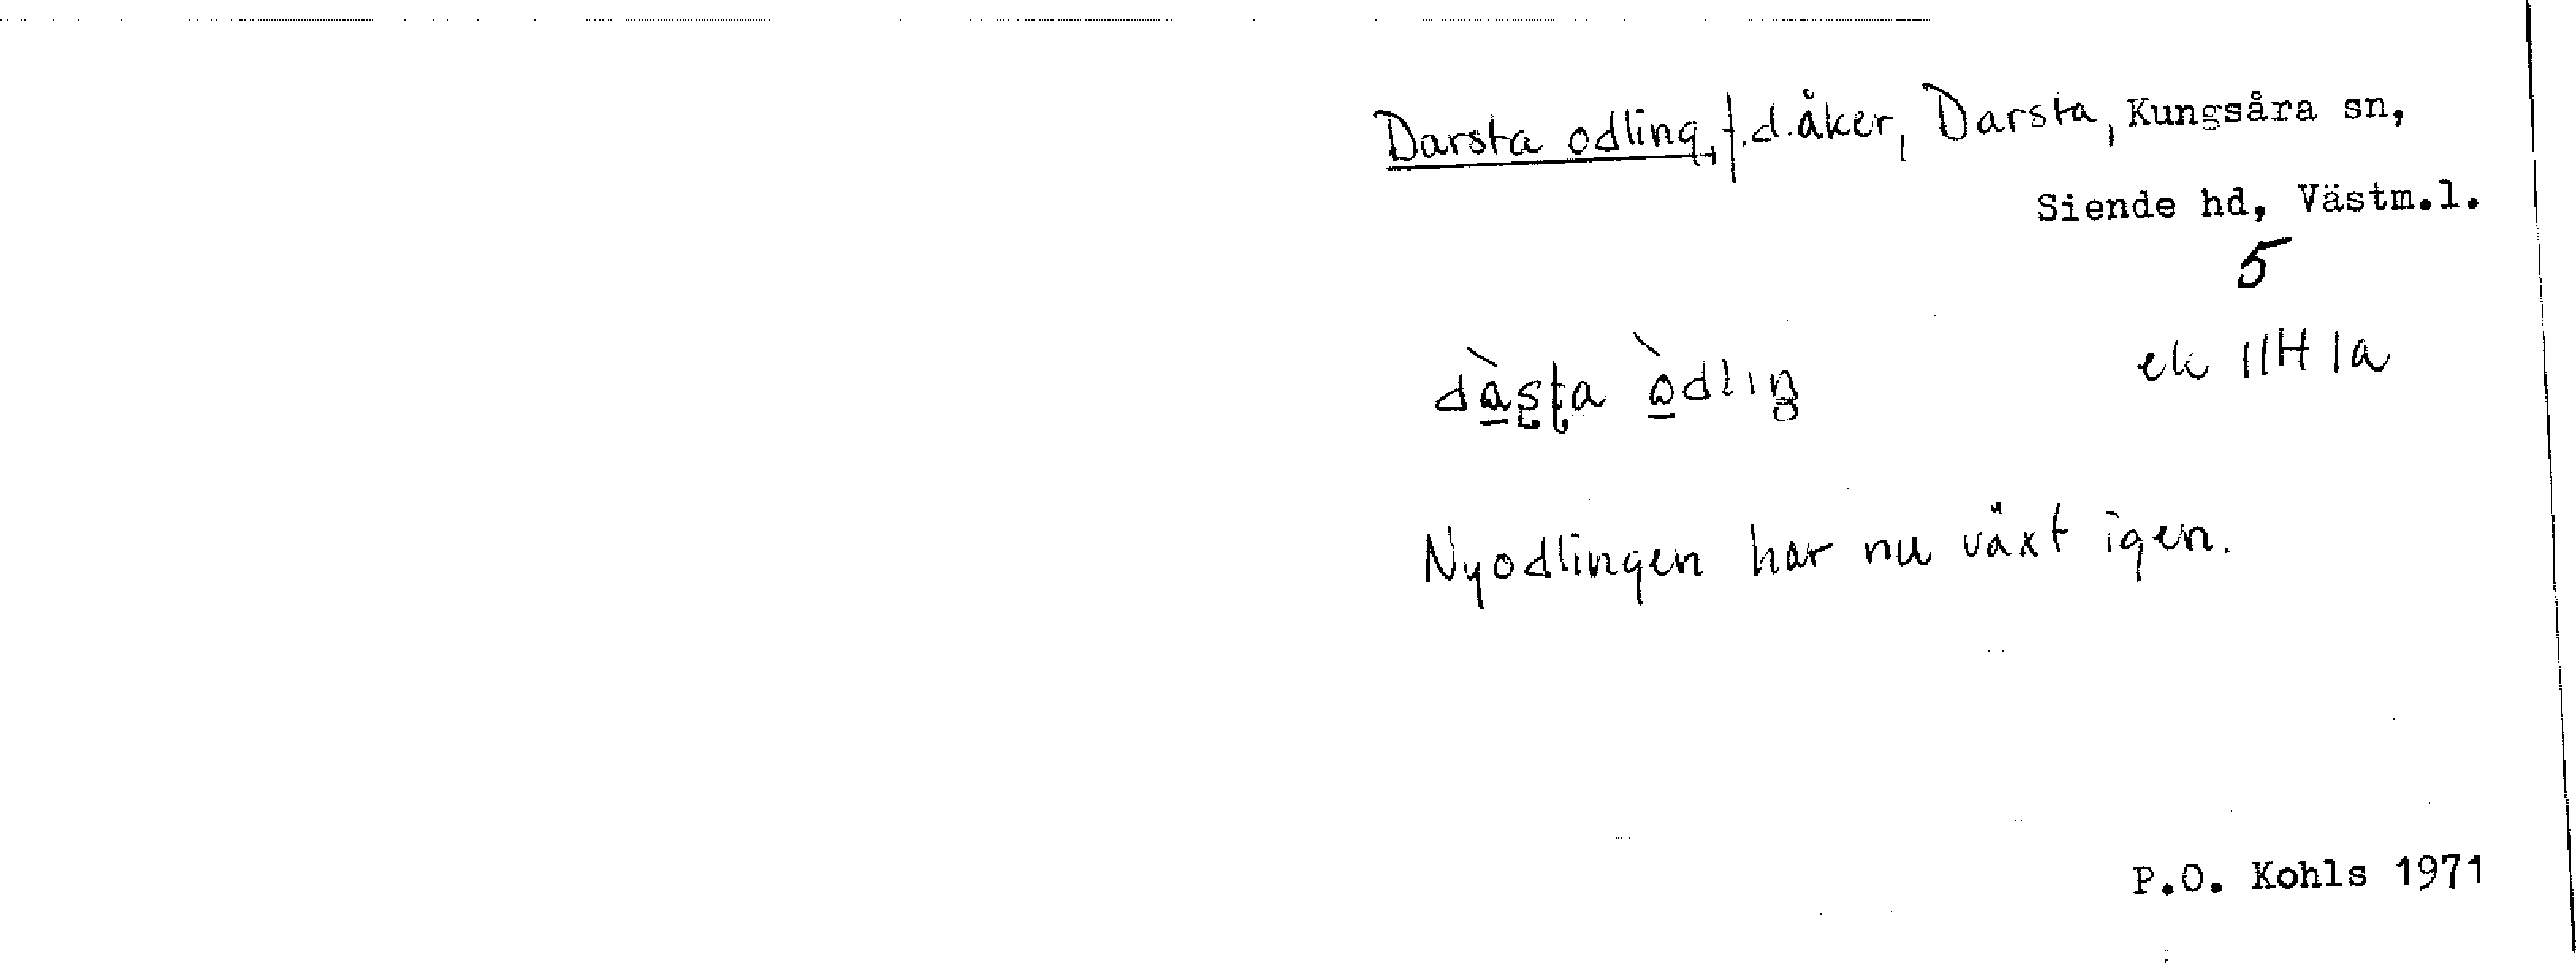 Darsta odling, f.d. åker, Darsta, Kungsåra sn,
Siende hd, Västm.l.
5
ek 11H 1a
dàsta òdliŋ
Nyodlingen har nu växt igen.
P.O. Kohls 1971